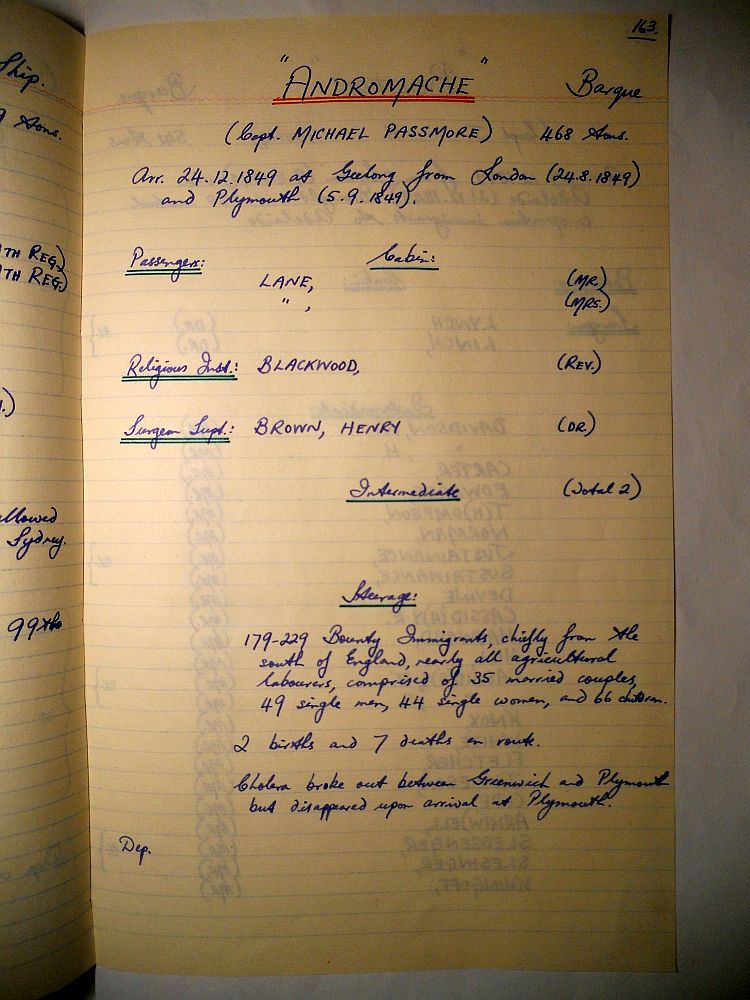 163.
"ANDROMACHE" Barque
(Capt. MICHAEL PASSMORE) 468 tons.
Arr. 24.12.1849 at Geelong from London (24.8.1849)
and Plymouth (5.9.1849).
Passengers: Cabin:
LANE, (MR.)
" , (MRS.)
Religious Inst.: BLACKWOOD, (REV.)
Surgeon Supt.: BROWN, HENRY (DR)
Intermediate (Total 2)
Steerage:
179-229 Bounty Immigrants, chiefly from the
south of England, nearly all agricultural
labourers, comprised of 35 married couples,
49 single men, 44 single women, and 66 children.
2 births and 7 deaths en route.
Cholera broke out between Greenwich and Plymouth
but disappeared upon arrival at Plymouth.
Dep.
Ship.
tons.
TH REG.)
TH REG.)
allowed
Sydney.
99th